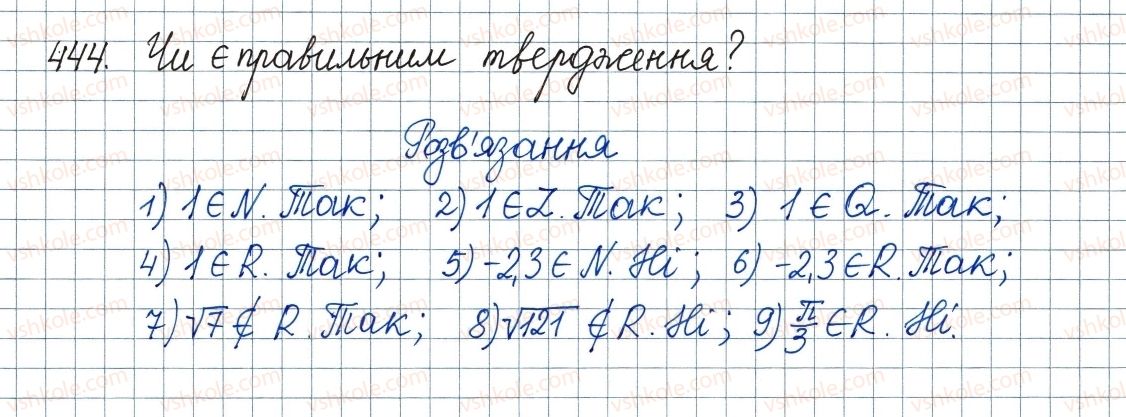 444. Чи є правильним твердження?
Розв'язання
1) 1 ∈ N. Так; 2) 1 ∈ Z. Так; 3) 1 ∈ Q. Так;
4) 1 ∈ R. Так; 5) -2,3 ∈ N. Ні; 6) -2,3 ∈ R. Так;
7) √7 ∉ R. Так; 8) √121 ∉ R. Ні; 9) π/3 ∈ R. Ні.
vshkole.com